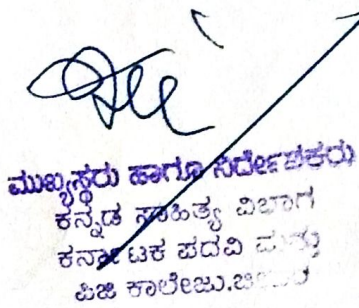 ಮುಖ್ಯಸ್ಥರು ಹಾಗೂ ನಿರ್ದೇಶಕರು
ಕನ್ನಡ ಸಾಹಿತ್ಯ ವಿಭಾಗ
ಕರ್ನಾಟಕ ಪದವಿ ಮತ್ತು
ಪಿಜಿ ಕಾಲೇಜು.